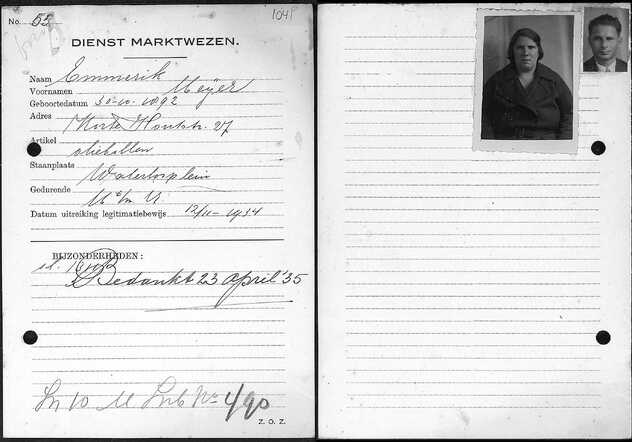 No. 52 1041
DIENST MARKTWEZEN.
Naam Emmerik
Voornamen Meyer
Geboortedatum 30-10-1892
Adres Korte Houtstr. 27
Artikel oliebollen
Staanplaats Waterlooplein
Gedurende
Datum uitreiking legitimatiebewijs 12/11-1934
BIJZONDERHEDEN:
Bedankt 23 april '35
No 4/90
Z. O. Z.